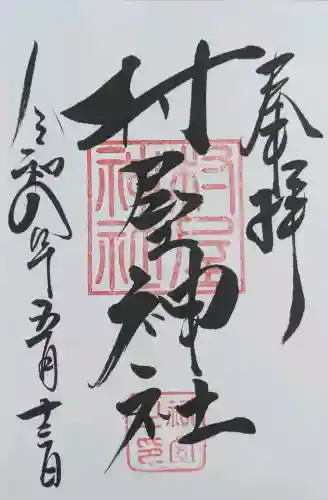 奉拝
村屋神社
令和八年五月十三日
村屋神社